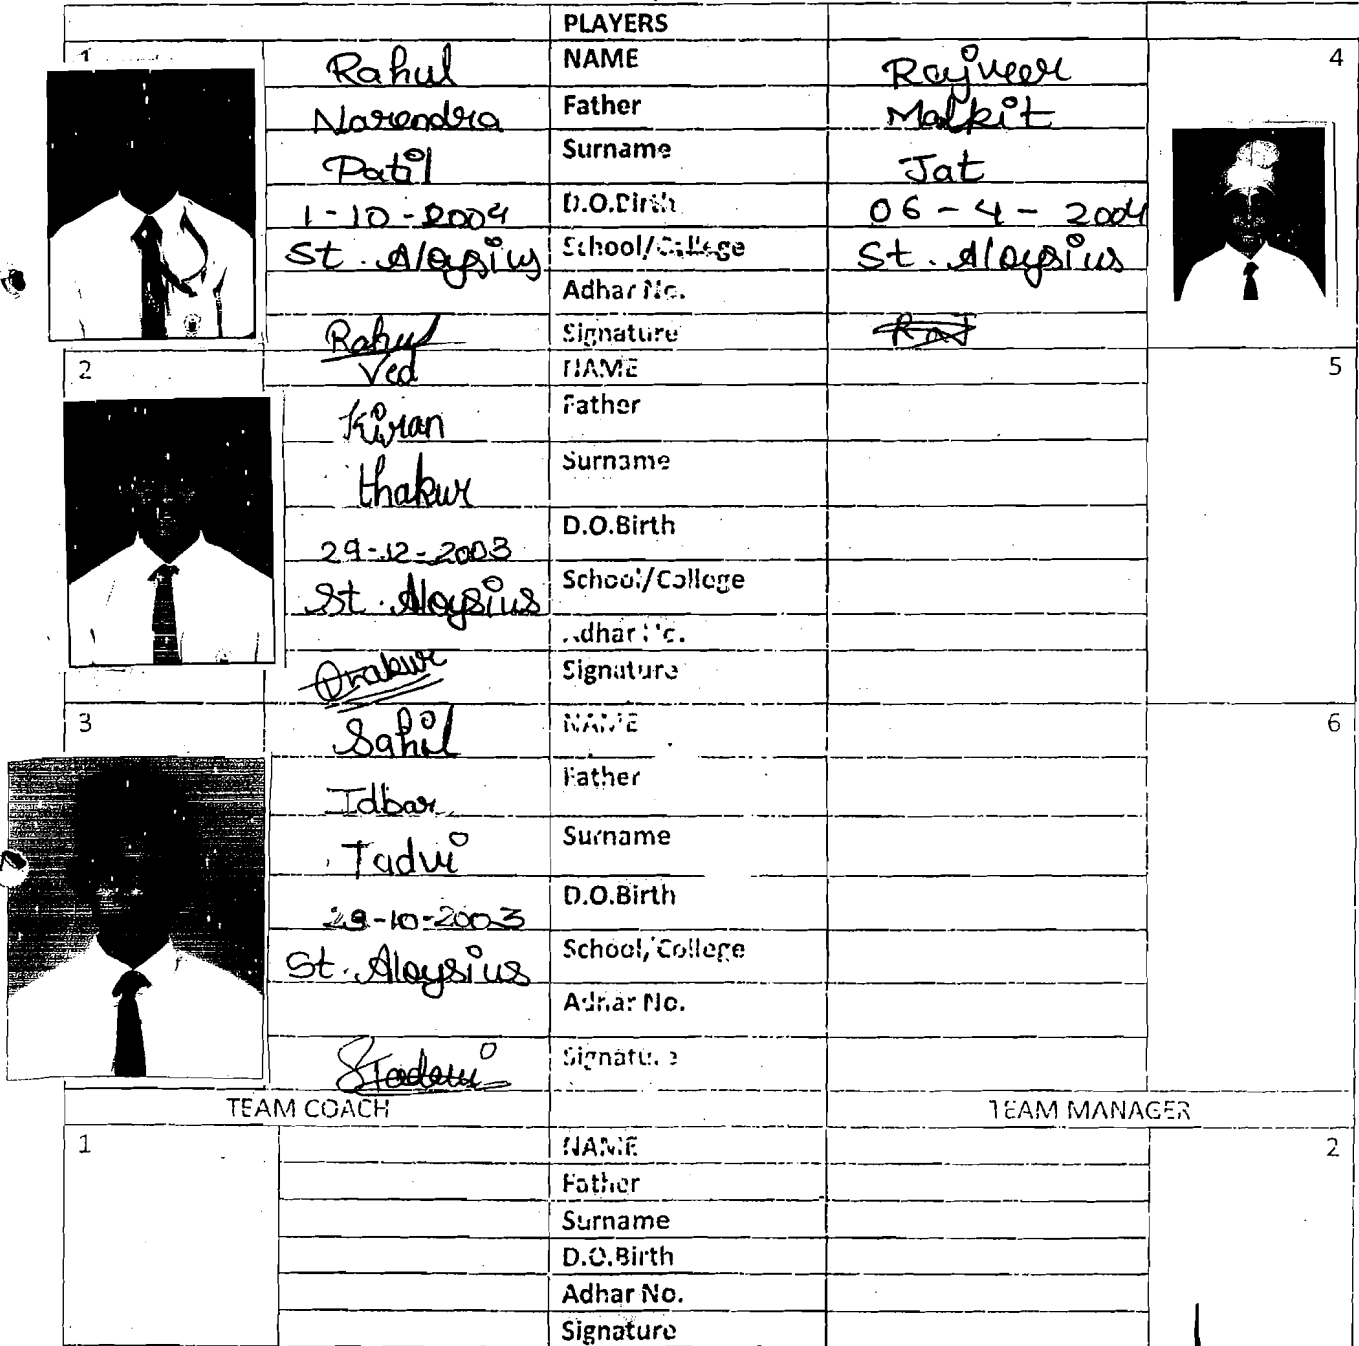 PLAYERS
1 Rahul NAME Rajveer 4
Narendra Father Malkit
Patil Surname Jat
1-10-2004 D.O.Birth 06-4-2004
St. Aloysius School/College St. Aloysius
Adhar No.
Rahul Signature Raj
2 Ved NAME 5
Kiran Father
thakur Surname
29-12-2003 D.O.Birth
St. Aloysius School/College
Adhar No.
Thakur Signature
3 Sahil NAME 6
Idbar Father
Tadvi Surname
29-10-2003 D.O.Birth
St. Aloysius School/College
Adhar No.
STadvi Signature
TEAM COACH TEAM MANAGER
1 NAME 2
Father
Surname
D.O.Birth
Adhar No.
Signature